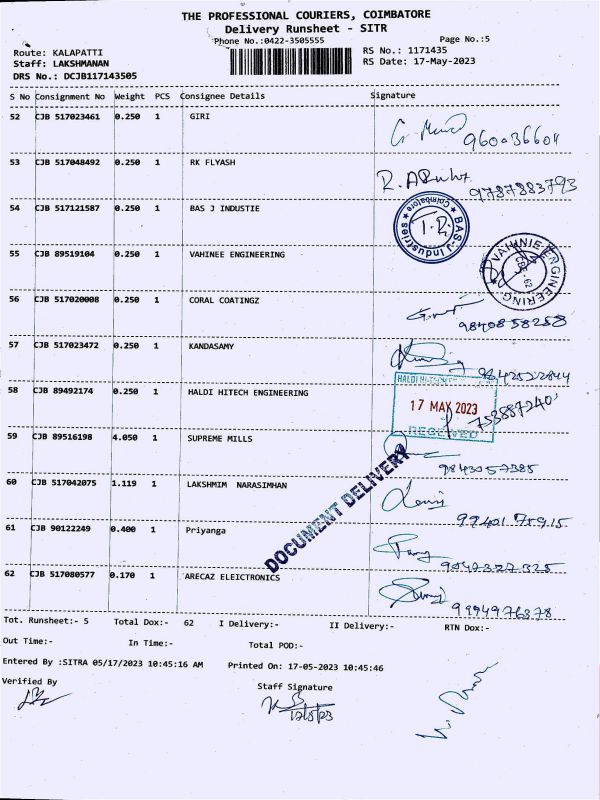 THE PROFESSIONAL COURIERS, COIMBATORE
Delivery Runsheet - SITR
Phone No.:0422-3505555 Page No.:5
Route: KALAPATTI RS No.: 1171435
Staff: LAKSHMANAN RS Date: 17-May-2023
DRS No.: DCJB117143505
S No Consignment No Weight PCS Consignee Details Signature
52 CJB 517023461 0.250 1 GIRI
53 CJB 517048492 0.250 1 RK FLYASH
9787883793
54 CJB 517121587 0.250 1 BAS J INDUSTIE
BAS-J Industries Coimbatore
55 CJB 89519104 0.250 1 VAHINEE ENGINEERING
VAHINIE ENGINEERING
56 CJB 517020008 0.250 1 CORAL COATINGZ
9840858258
57 CJB 517023472 0.250 1 KANDASAMY
9842522844
58 CJB 89492174 0.250 1 HALDI HITECH ENGINEERING
17 MAY 2023
RECEIVED
59 CJB 89516198 4.050 1 SUPREME MILLS
9843057385
DOCUMENT DELIVERY
60 CJB 517042075 1.119 1 LAKSHMIM NARASIMHAN
61 CJB 90122249 0.400 1 Priyanga
62 CJB 517080577 0.170 1 ARECAZ ELEICTRONICS
9994976878
Tot. Runsheet:- 5 Total Dox:- 62 I Delivery:- II Delivery:- RTN Dox:-
Out Time:- In Time:- Total POD:-
Entered By :SITRA 05/17/2023 10:45:16 AM Printed On: 17-05-2023 10:45:46
Verified By Staff Signature